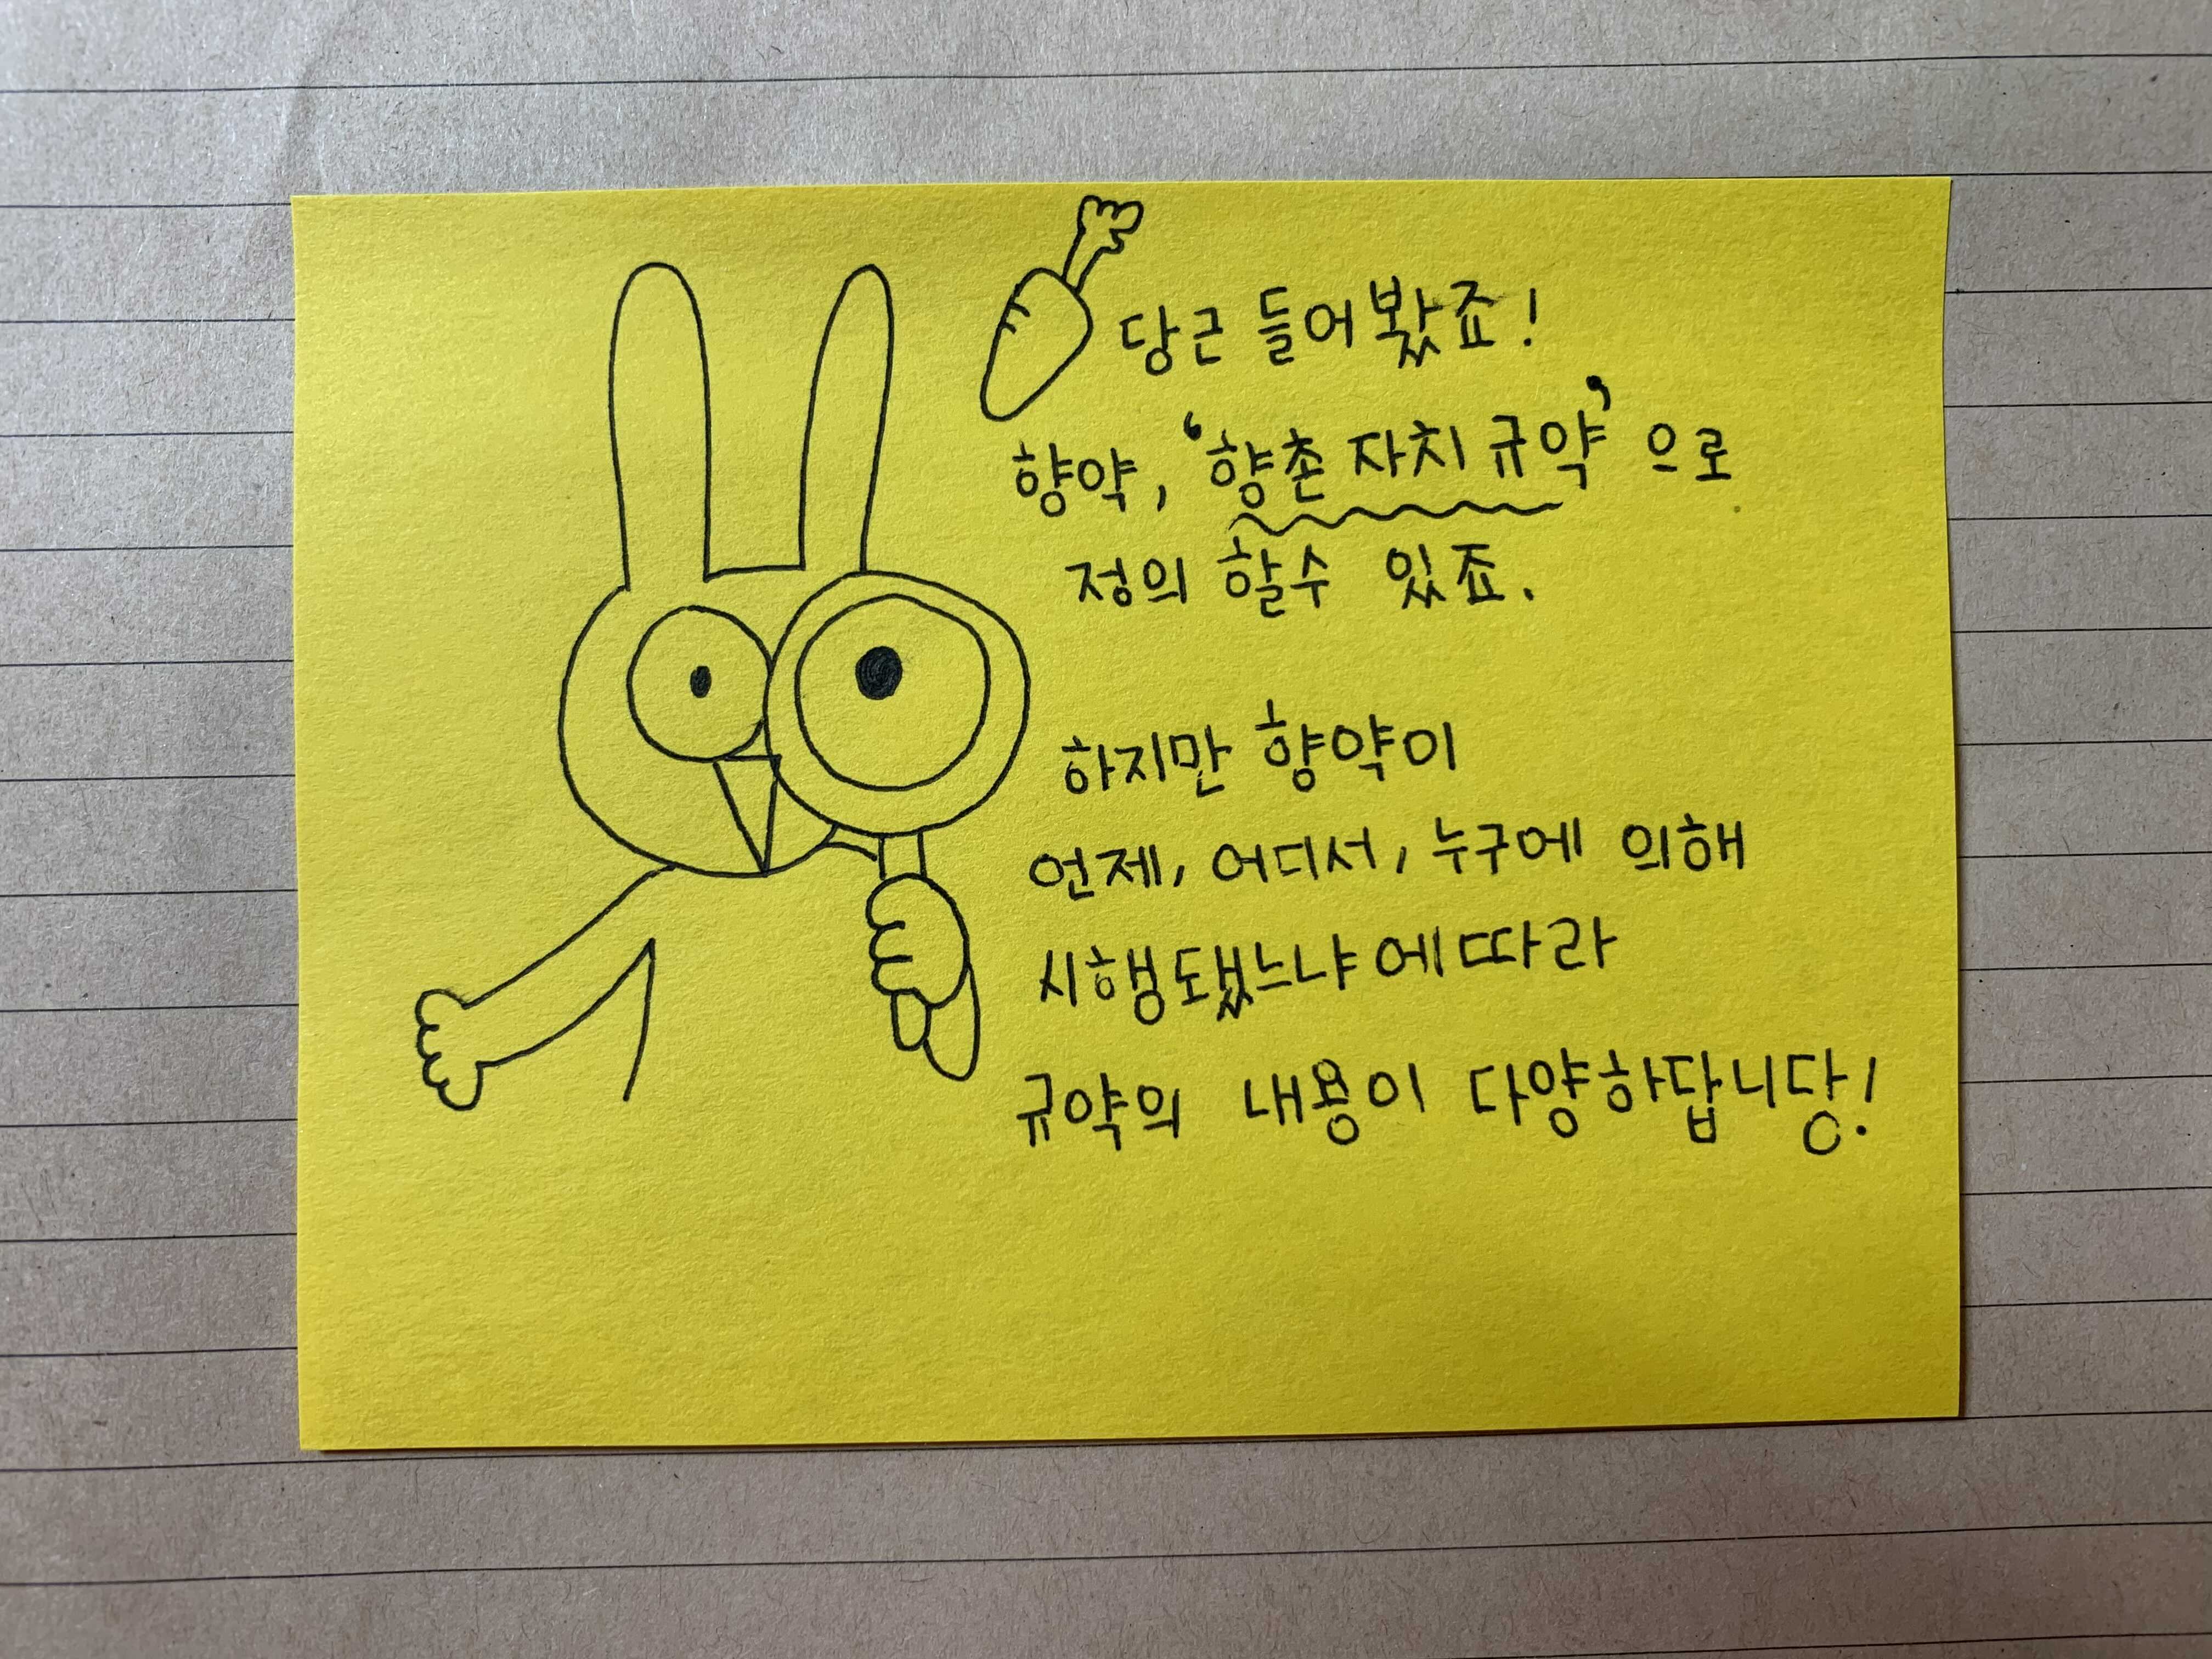 당근 들어봤죠!
향약, '향촌 자치 규약' 으로
정의 할수 있죠.
하지만 향약이
언제, 어디서, 누구에 의해
시행됐느냐에 따라
규약의 내용이 다양하답니당!